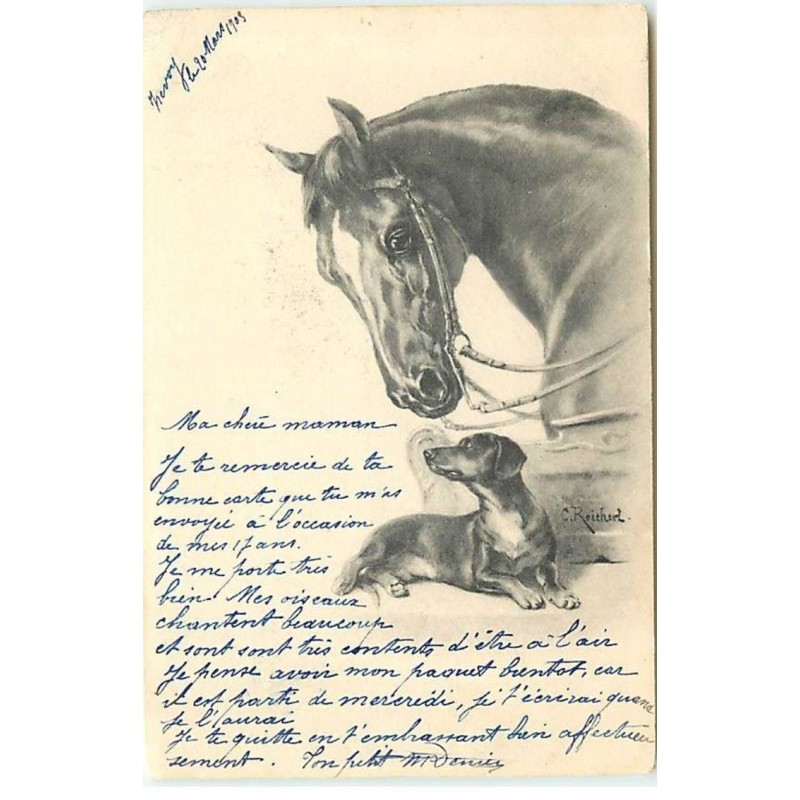 le 20 Mars 1903
Ma chère maman
Je te remercie de ta
bonne carte que tu m'as
envoyée à l'occasion
de mes 17 ans.
Je me porte très
bien. Mes oiseaux
chantent beaucoup
et sont sont très contents d'être à l'air
Je pense avoir mon paquet bientot, car
il est parti de mercredi, je t'écrirai quand
je l'aurai
Je te quitte en t'embrassant bien affectueu
sement. Ton petit
C. Reichert.